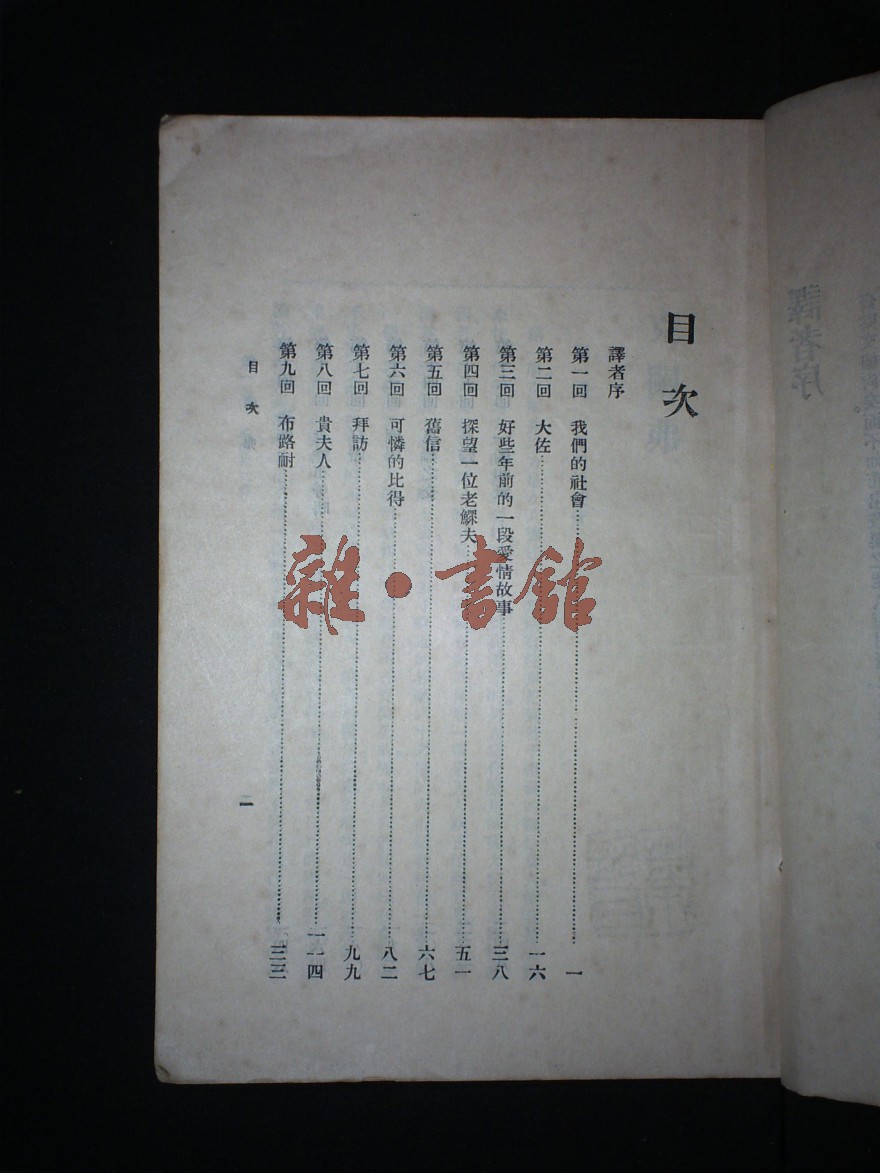 譯者序
目次
譯者序
第一回 我們的社會……一
第二回 大佐……一六
第三回 好些年前的一段愛情故事……三八
第四回 探望一位老鰥夫……五一
第五回 舊信……六七
第六回 可憐的比得……八二
第七回 拜訪……九九
第八回 貴夫人……一一四
第九回 布路耐……三三
目次
雜·書館